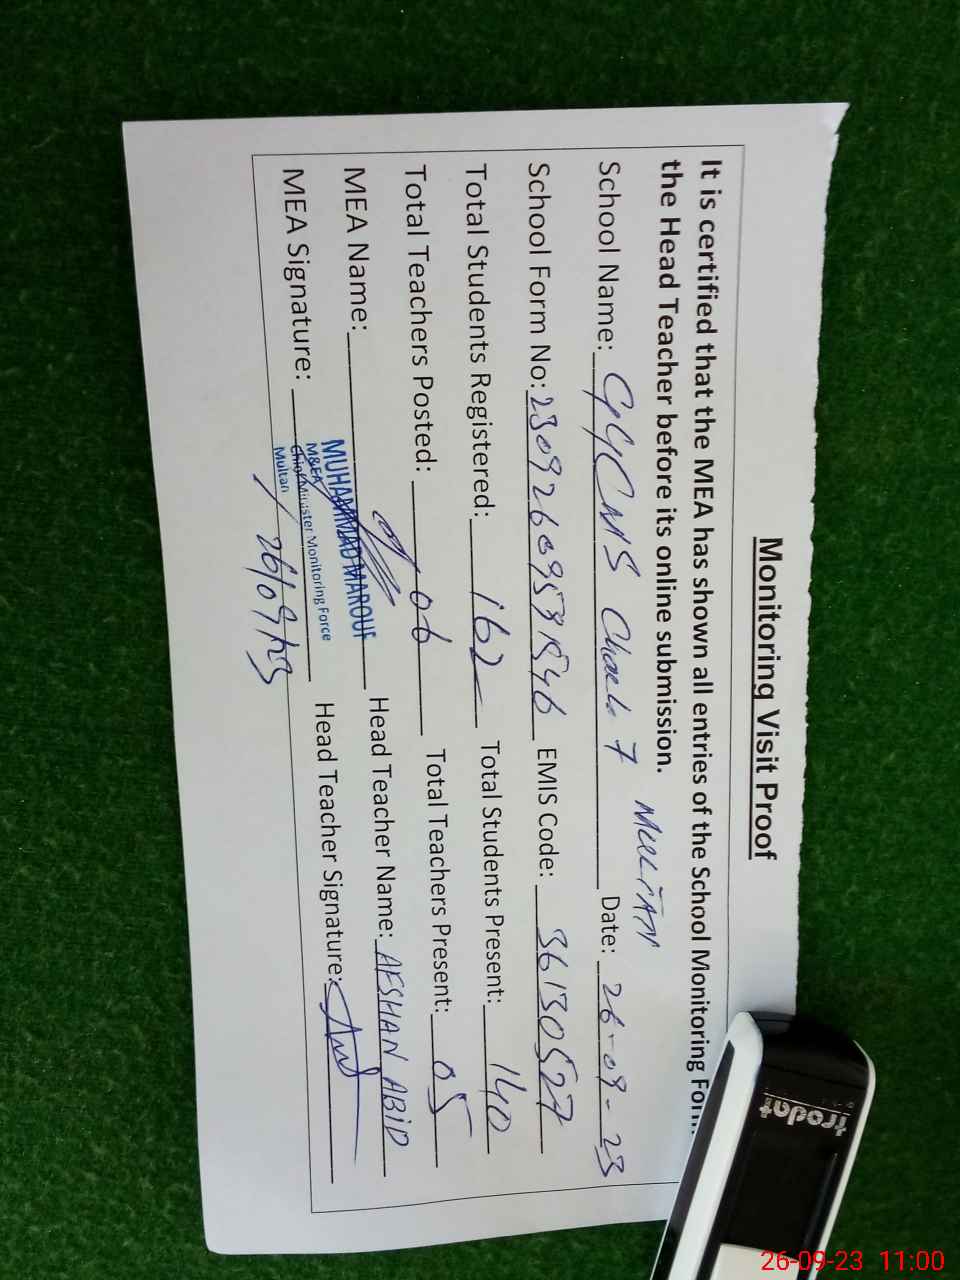 Monitoring Visit Proof
It is certified that the MEA has shown all entries of the School Monitoring Form
the Head Teacher before its online submission. MULTAN
School Name: GGCMS Chack 7 Date: 26-09-23
School Form No: EMIS Code: 36130527
Total Students Registered: 162 Total Students Present: 140
Total Teachers Posted: 06 Total Teachers Present: 05
MEA Name: MUHAMMAD MAROUF Head Teacher Name: AFSHAN ABID
M&EA
MEA Signature: Chief Minister Monitoring Force Head Teacher Signature:
Multan
26/09/23
trodat
26-09-23 11:00